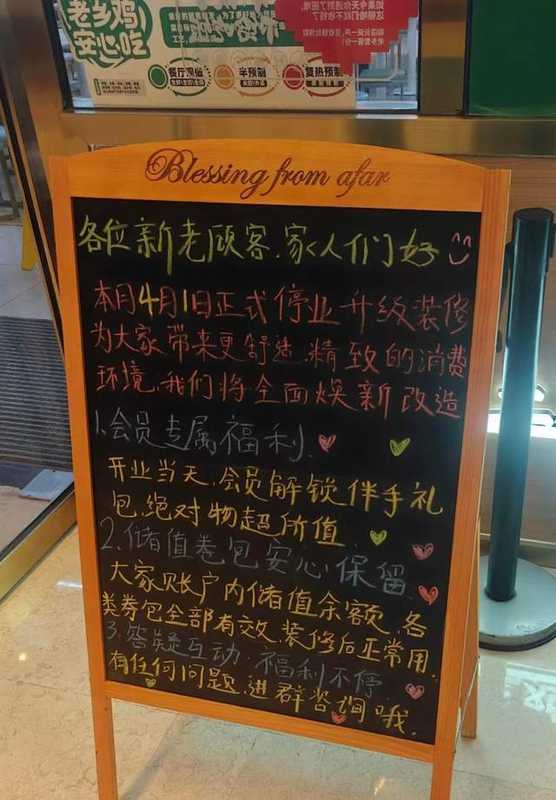 老乡鸡
安心吃
餐厅现做
半预制
复热预制
Blessing from afar
各位新老顾客.家人们好
本月4月1日正式停业升级装修
为大家带来更舒适.精致的消费
环境.我们将全面焕新改造
1.会员专属福利.
开业当天.会员解锁伴手礼
包.绝对物超价值
2.储值卷包安心保留.
大家账户内储值余额.各
类券包全部有效.装修后正常用.
3.答疑互动.福利不停
有任何问题.进群咨询哦.